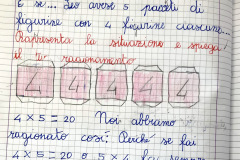 E se... Leo avesse 5 pacchetti di
figurine con 4 figurine ciascuno...
Rappresenta la situazione e spiega
il tuo ragionamento
4 4 4 4 4
4 x 5 = 20 Noi abbiamo
ragionato così: Perché se fai
4 x 5 = 20 o 5 x 4 fai sempre